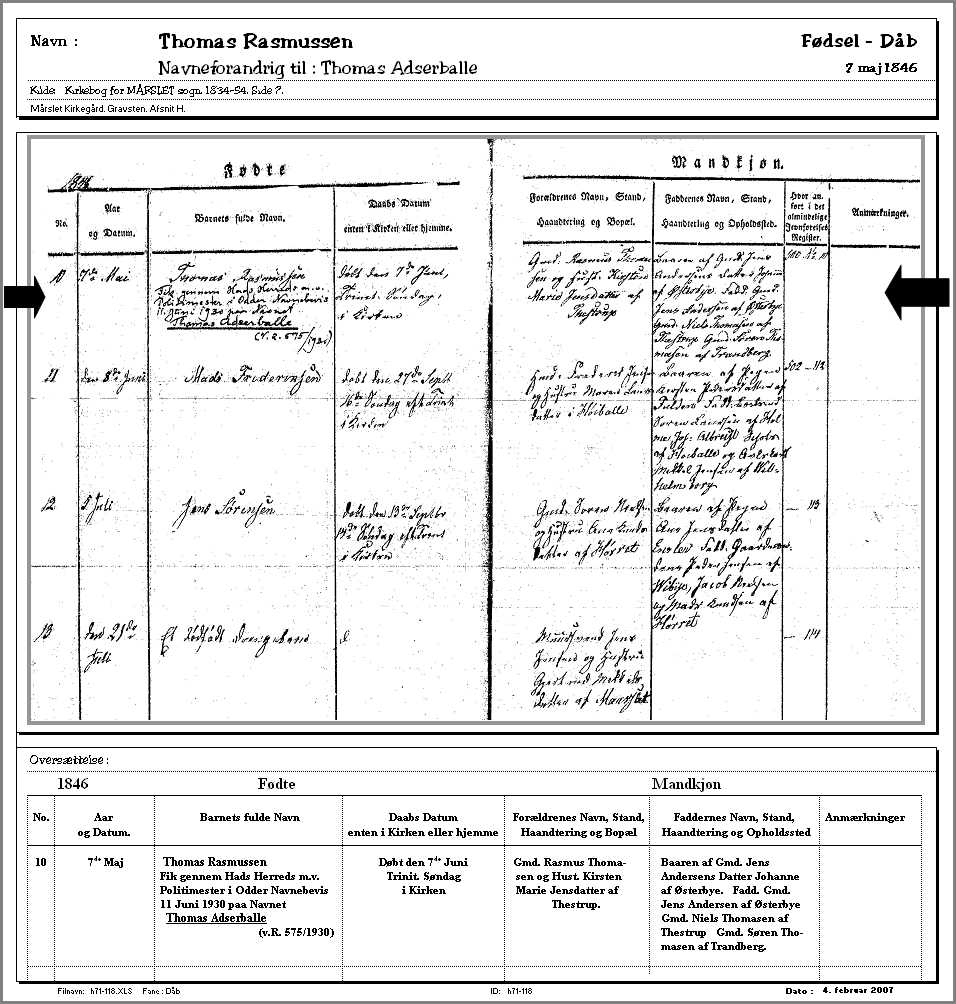 Navn : Thomas Rasmussen Fødsel - Dåb
Navneforandrig til : Thomas Adserballe 7 maj 1846
Kilde Kirkebog for MÅRSLET sogn. 1834-54. Side 7.
Mårslet Kirkegård. Gravsten. Afsnit H.
Fødte Mandkjøn.
1846
No.
Aar
og Datum.
Barnets fulde Navn.
Daabs Datum
enten i Kirken eller hjemme.
Forældrenes Navn, Stand,
Haandtering og Bopæl.
Faddernes Navn, Stand,
Haandtering og Opholdssted.
Hvor an-
ført i det
almindelige
Jevnførelses
Register.
Anmærkninger.
10
7de Mai
Thomas Rasmussen
Fik gennem Hads Herreds m.v.
Politimester i Odder Navnebevis
11. Juni 1930 paa Navnet
Thomas Adserballe
(v. R. 575/1930)
Døbt den 7de Juni,
Trinit. Søndag,
i Kirken
Gmd. Rasmus Thoma-
sen og Hust. Kirsten
Marie Jensdatter af
Thestrup
Baaren af Gmd. Jens
Andersens Datter
af Østerbye. Fadd. Gmd.
Jens Andersen af Østerbye
Gmd. Niels Thomasen af
Thestrup Gmd. Søren Tho-
masen af Trandberg.
11
den 8de Juni
Mads Fredericksen
døbt den 27de Septb
16de Søndag eft. Trinit
i Kirken
og Hustru Maren
datter i Høiballe
Baaren af Pigen
102 - 112
12
5 Juli
Jens Sörensen
døbt den 13de Septbr
14de Søndag eft. Trinit
i Kirken
Gmd. Søren
og Hustru Ane Knuds-
datter af Hørret
Baaren af Pigen
Ane Jensdatter af
Peder Jensen af
Jacob
og Mads Knudsen af
Hørret
- 113
13
den 21de
Juli
Et dødfødt Drengebarn
Jens
Jensen og Hustru
datter af Maarslet
- 114
Oversættelse :
1846 Fødte Mandkjøn
No.
Aar
og Datum.
Barnets fulde Navn
Daabs Datum
enten i Kirken eller hjemme
Forældrenes Navn, Stand,
Haandtering og Bopæl
Faddernes Navn, Stand,
Haandtering og Opholdssted
Anmærkninger
10
7de Maj
Thomas Rasmussen
Fik gennem Hads Herreds m.v.
Politimester i Odder Navnebevis
11 Juni 1930 paa Navnet
Thomas Adserballe
(v.R. 575/1930)
Døbt den 7de Juni
Trinit. Søndag
i Kirken
Gmd. Rasmus Thoma-
sen og Hust. Kirsten
Marie Jensdatter af
Thestrup.
Baaren af Gmd. Jens
Andersens Datter Johanne
af Østerbye. Fadd. Gmd.
Jens Andersen af Østerbye
Gmd. Niels Thomasen af
Thestrup Gmd. Søren Tho-
masen af Trandberg.
Filnavn: h71-118.XLS Fane : Dåb ID: h71-118 Dato : 4. februar 2007